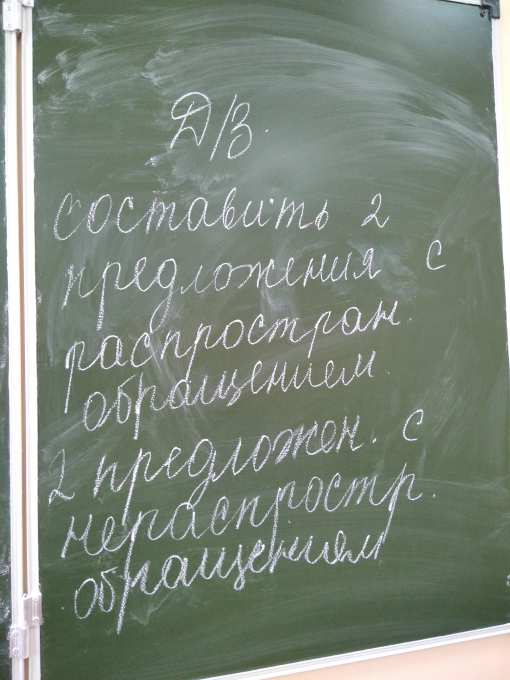 Д/З.
составить 2
предложения с
распростран.
обращением.
2 предложен. с
нераспростр.
обращением